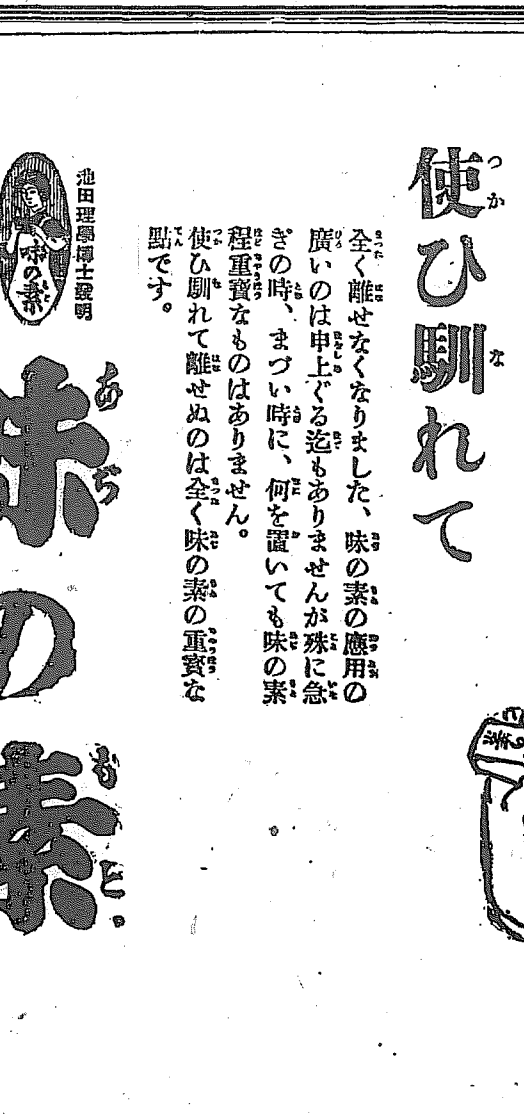 使ひ馴れて
全く離せなくなりました、味の素の應用の
廣いのは申上ぐる迄もありませんが殊に急
ぎの時、まづい時に、何を置いても味の素
程重寳なものはありません。
使ひ馴れて離せぬのは全く味の素の重寳な
點です。
池田理學博士發明
味の素
味の素